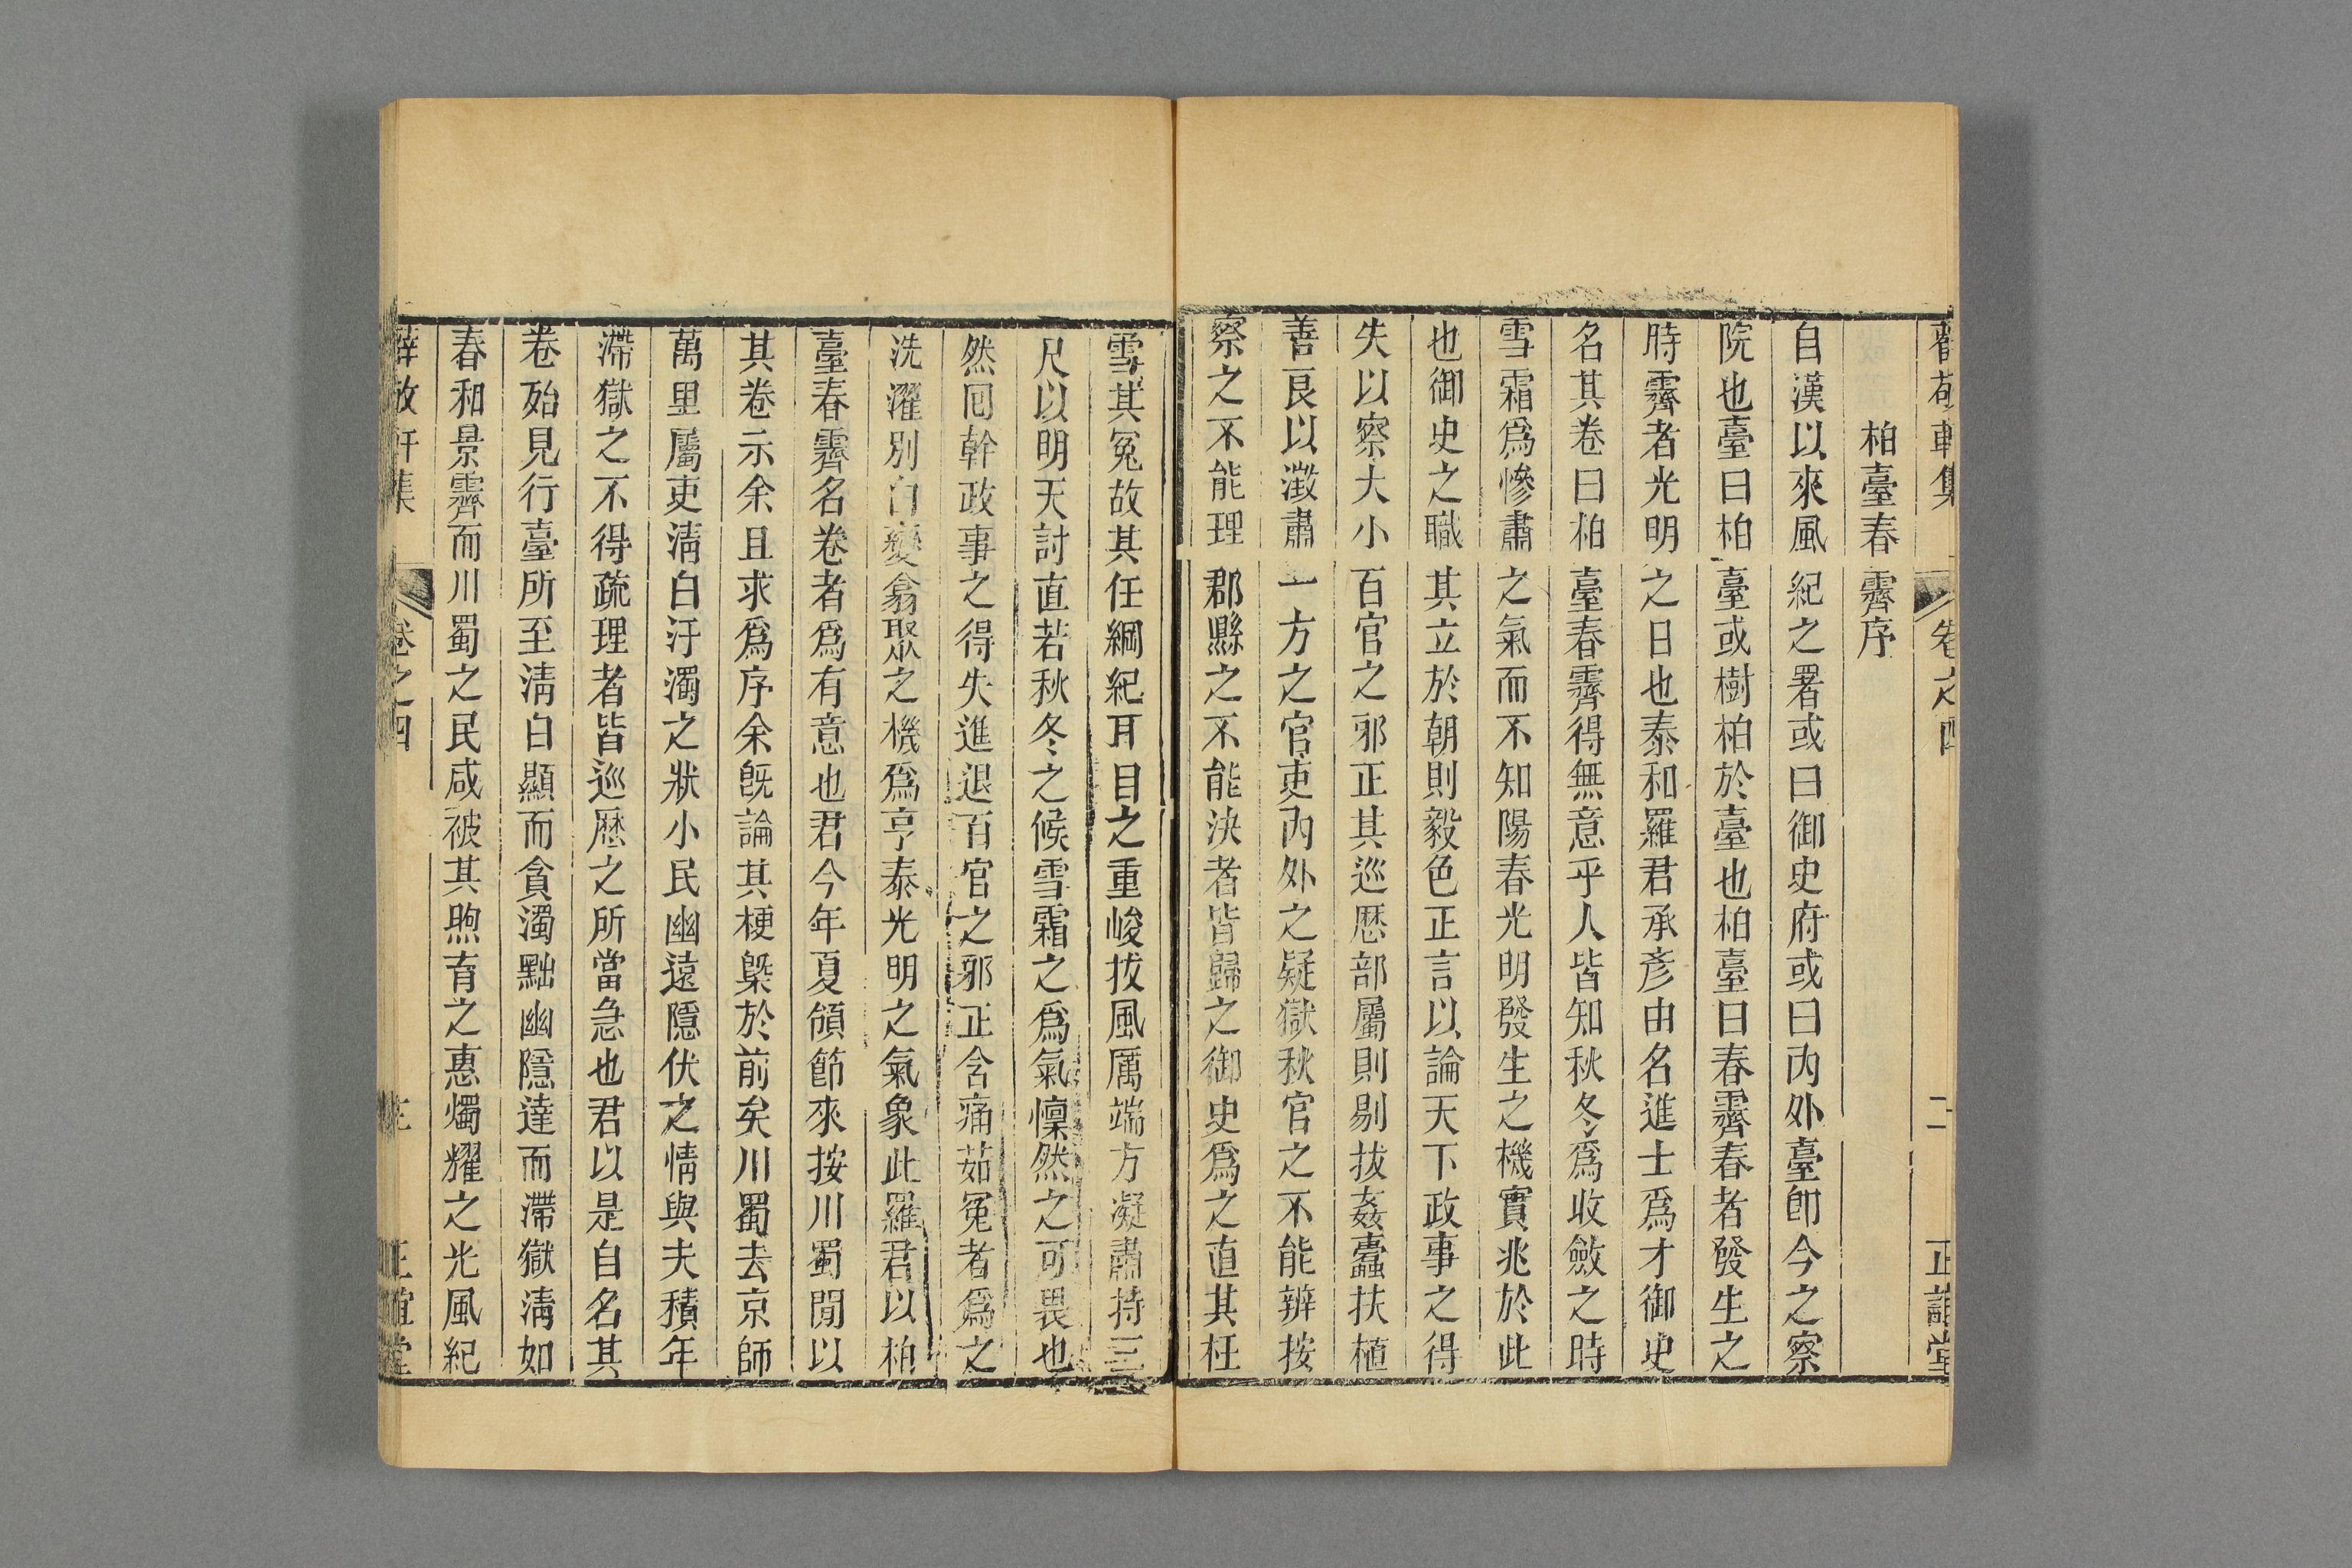 薛敬軒集 卷之四 二 正誼堂
柏臺春霽序
自漢以來風紀之署或曰御史府或曰內外臺卽今之察
院也臺曰柏臺或樹柏於臺也柏臺曰春霽春者發生之
時霽者光明之日也泰和羅君承彥由名進士爲才御史
名其卷曰柏臺春霽得無意乎人皆知秋冬爲收斂之時
雪霜爲慘肅之氣而不知陽春光明發生之機實兆於此
也御史之職其立於朝則毅色正言以論天下政事之得
失以察大小百官之邪正其巡歷部屬則剔拔姦蠹扶植
善良以澂肅一方之官吏內外之疑獄秋官之不能辨按
察之不能理郡縣之不能決者皆歸之御史爲之直其枉
雪其冤故其任綱紀耳目之重峻拔風厲端方凝肅持三
尺以明天討直若秋冬之候雪霜之爲氣懍然之可畏也
然囘幹政事之得失進退百官之邪正含痛茹冤者爲之
洗濯別白變翕聚之機爲亨泰光明之氣象此羅君以柏
臺春霽名卷者爲有意也君今年夏頒節來按川蜀閒以
其卷示余且求爲序余旣論其梗槩於前矣川蜀去京師
萬里屬吏淸白汙濁之狀小民幽遠隱伏之情與夫積年
滯獄之不得疏理者皆巡歷之所當急也君以是自名其
卷殆見行臺所至淸白顯而貪濁黜幽隱達而滯獄淸如
春和景霽而川蜀之民咸被其煦育之惠燭耀之光風紀
薛敬軒集 卷之四 三 正誼堂